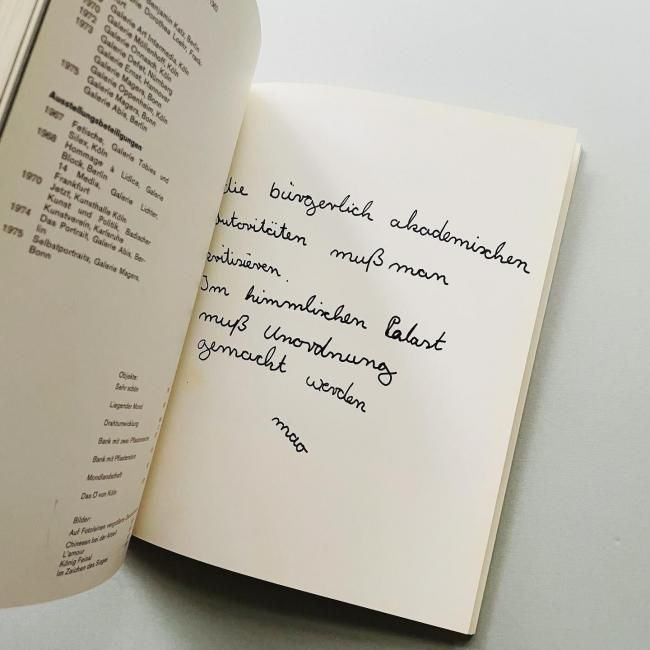 Benjamin Katz, Berlin
Galerie Dorothea Loehr, Frank-
1970
Galerie Art Intermedia, Köln
1972
Galerie Möllenhoff, Köln
1973
Galerie Onnasch, Köln
Galerie Defet, Nürnberg
Galerie Ernst, Hannover
Galerie Magers, Bonn
1975
Galerie Oppenheim, Köln
Galerie Magers, Bonn
Galerie Abis, Berlin
Ausstellungsbeteiligungen
1967 Fetische, Galerie Tobies und
Silex, Köln
1968 Hommage à Lidice, Galerie
Block, Berlin
14 Media, Galerie Lichter,
Frankfurt
1970 Jetzt, Kunsthalle Köln
Kunst und Politik, Badischer
Kunstverein, Karlsruhe
1974 Das Portrait, Galerie Abis, Ber-
lin
1975 Selbstportraits, Galerie Magers,
Bonn
Objekte:
Sehr schön
Liegender Mond
Drahtumwicklung
Bank mit zwei
Bank mit Pflasterstein
Mondlandschaft
Das Ü von Köln
Bilder:
Auf Fotoleinen
Chinesen bei der Arbeit
L'amour
König Faisal
Im Zeichen des Segens
die bürgerlich akademischen
autoritäten muß man
kritisieren.
Im himmlischen Palast
muß Unordnung
gemacht werden
mao